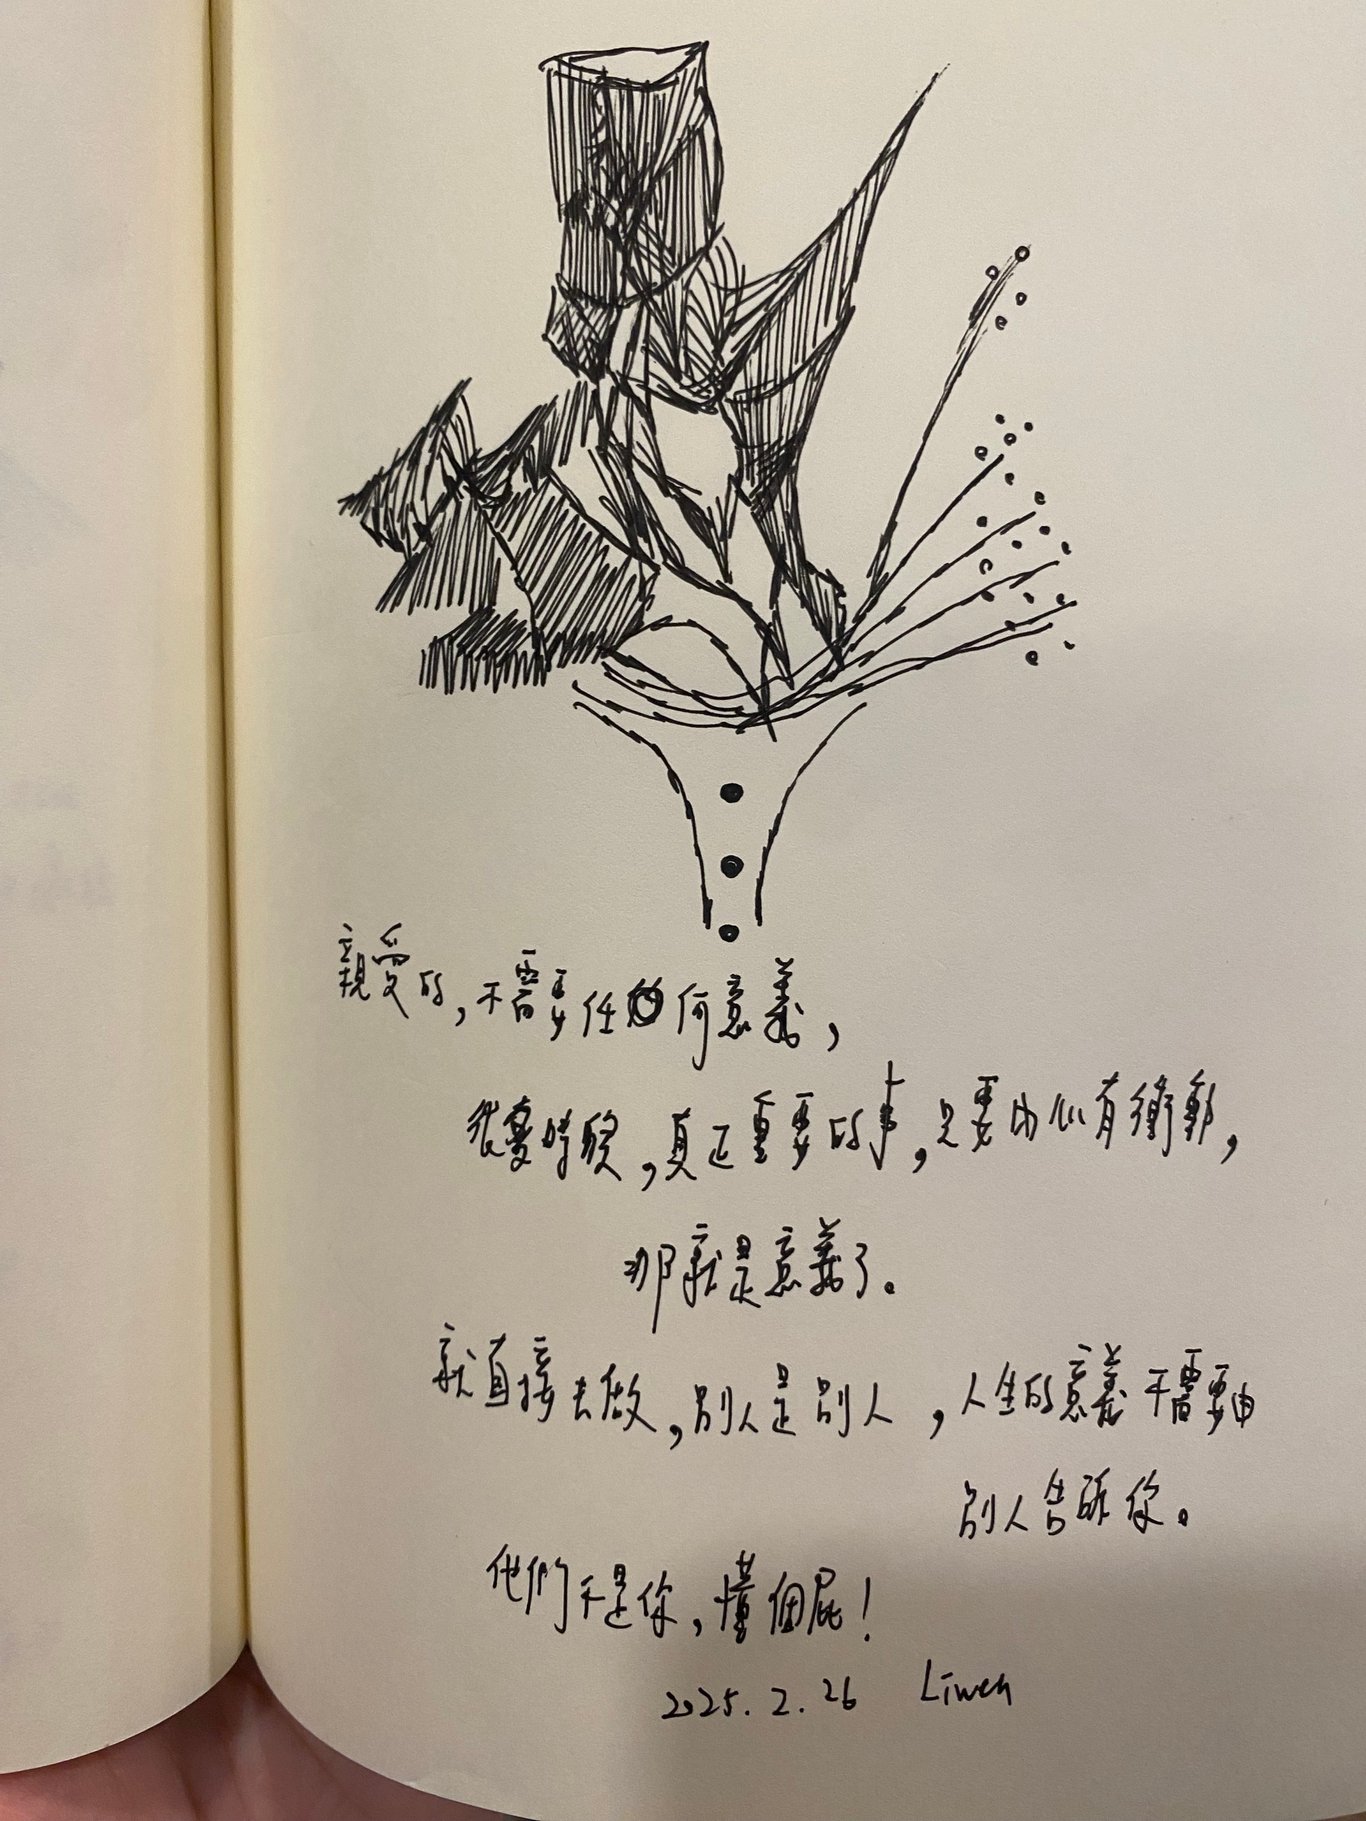 親愛的，不需要任何意義，
很多時候，真正重要的事，只要內心有衝動，
那就是意義了。
就直接去做，別人是別人，人生的意義不需要由
別人告訴你。
他們不是你，懂個屁！
2025.2.26 Liwen